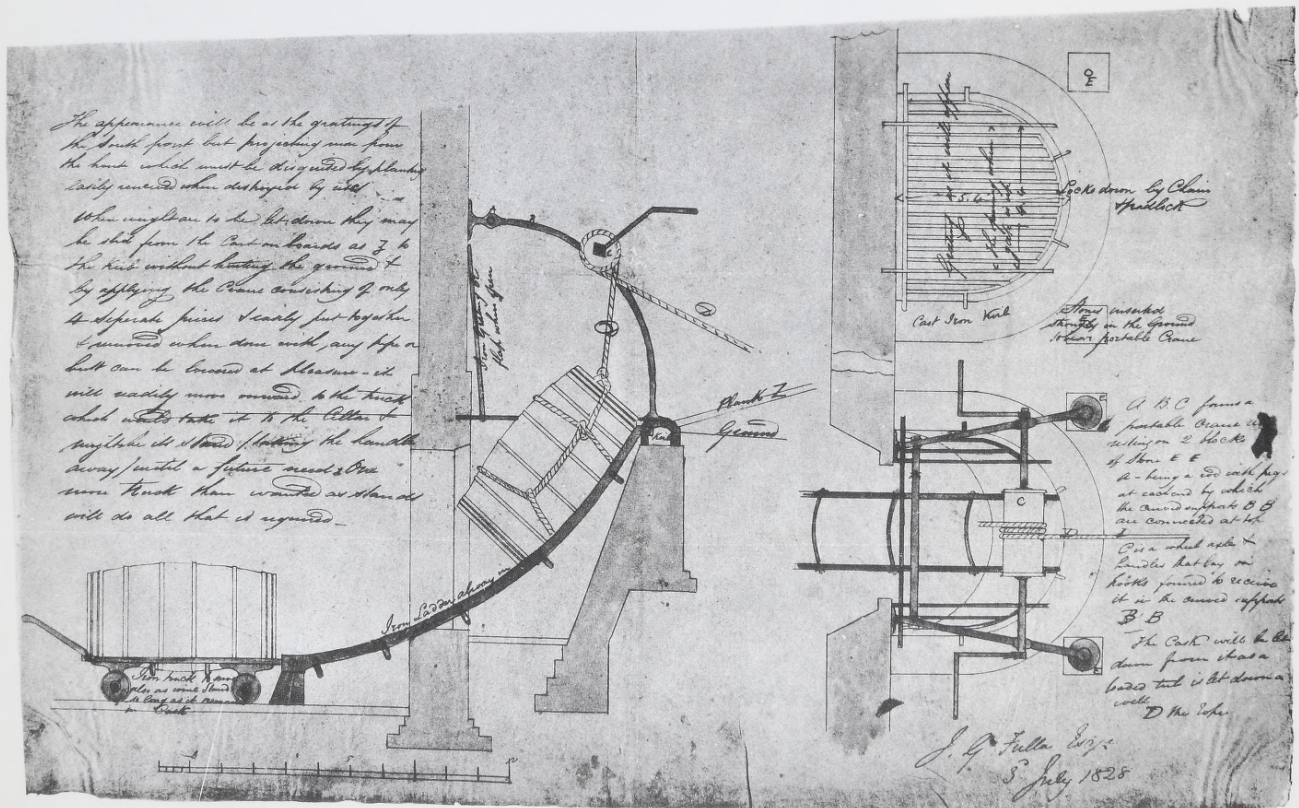 The appearance will be as the gratings of
the South front but projecting more from
the which must be disguised by planting
easily renewed when destroyed by
When weights are to be let down they may
be slid from the Cart on boards as Z to
the Kirb without hurting the ground &
by applying the Crane consisting of only
4 seperate pieces easily put together
& removed when done with, any pipe or
butt can be lowered at pleasure - it
will readily move onward to the truck
which would take it to the Cellar &
might be its stand (putting the handle
away) until a future need & One
more truck than wanted as stands
will do all that is required -
Iron Grating or
flap when open
D
Plank Z
Ground
Kirb
Iron Ladder always in
Iron truck to
also as wine Stand
so long as it remains
in Cask
5
10
Grating as it will appear
5.6
E
Locks down by Chain
& padlock
Cast Iron Kirb
Stones inserted
strongly in the Ground
to bear portable Crane
E
C
D
A B C forms a
portable Crane
resting on 2 blocks
of Stone E E
A - being a rod with pegs
at each end by which
the curved supports B B
are connected at top
C is a wheel axle &
handles that lay on
hooks formed to receive
it in the curved supports
B B
The Cask will be let
down from it as a
loaded tub is let down a
well
D the rope
J. G Fuller Esqr
5 July 1828